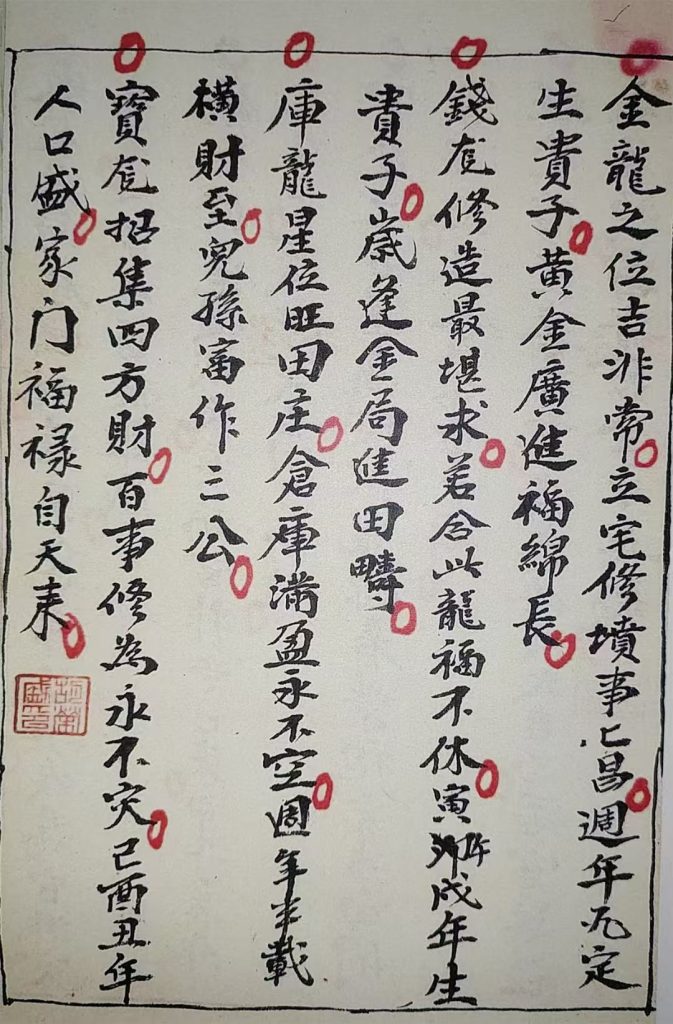 金龍之位吉非常立宅修墳事〻昌週年定
生貴子黄金廣進福綿長
錢龙修造最堪求若合此龍福不休寅午戌年生
貴子歲逢金局進田疇
庫龍星位旺田庄倉庫滿盈永不空週年半載
橫財至兒孫富作三公
寳龙招集四方財百事修為永不灾巳酉丑年
人口盛家门福禄自天来